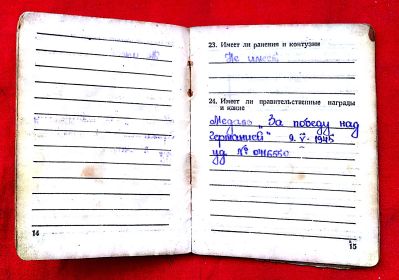 14
23. Имеет ли ранения и контузии
Не имеет
24. Имеет ли правительственные награды
и какие
Медаль „За победу над
Германией" 9.V-1945
уд. № 0416550
15